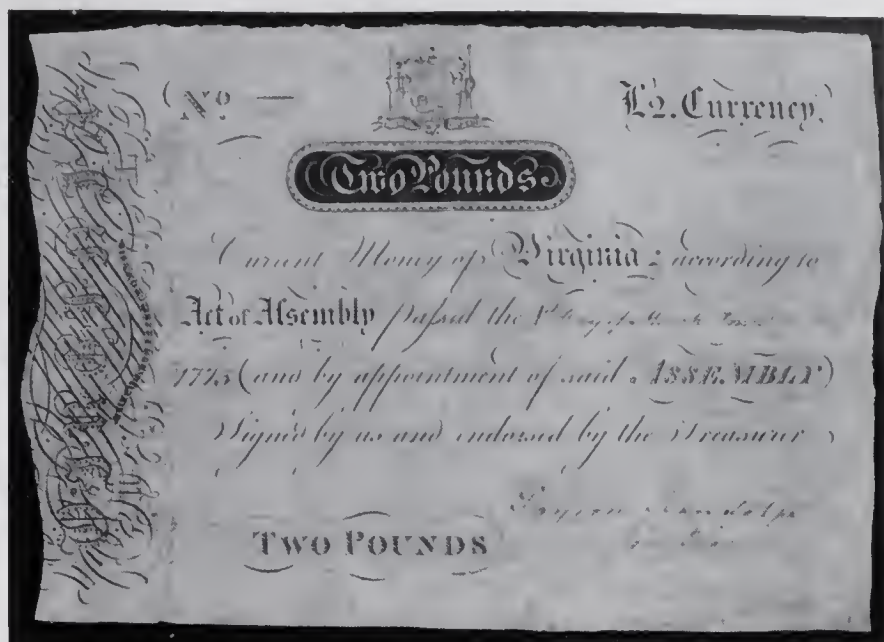 (No —
£2. Currency.
Two Pounds
Current Money of Virginia : according to
Act of Assembly passed the 1st
1775 (and by appointment of said ASSEMBLY)
Signed by us and endorsed by the Treasurer
Peyton Randolph
TWO POUNDS